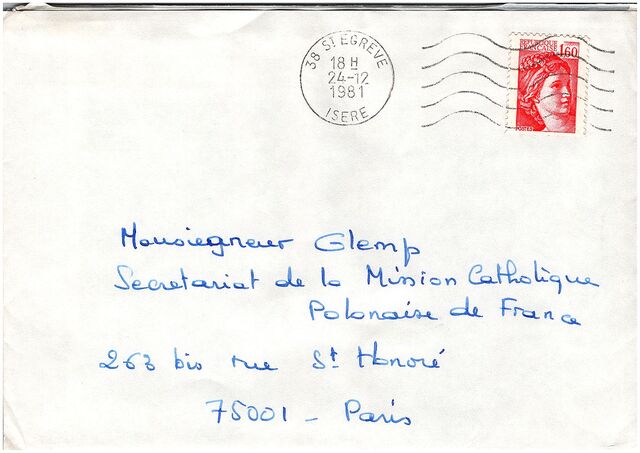 38 ST EGREVE
18 H
24-12
1981
ISERE
REPUBLIQUE
FRANCAISE
1,60
POSTES
Monsiegneur Glemp
Secretariat de la Mission Catholique
Polonaise de France
263 bis rue St Honoré
75001 - Paris